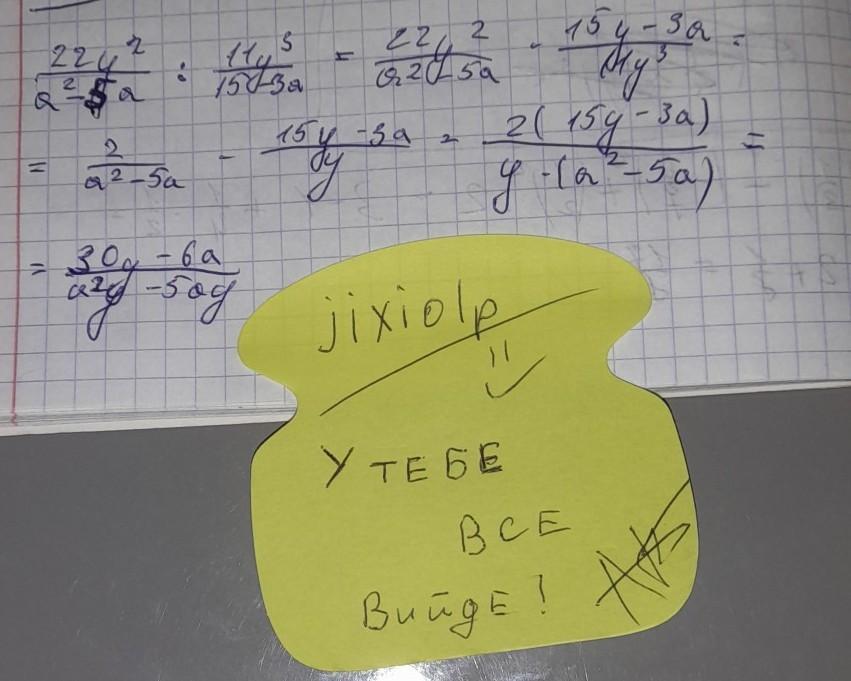 22y² / a²-5a : 11y³ / 15y-3a = 22y² / a²-5a · 15y-3a / 11y³ =
= 2 / a²-5a · 15y-3a / y = 2(15y-3a) / y·(a²-5a) =
= 30y-6a / a²y-5ay
jixiolp
У ТЕБЕ
ВСЕ
ВийдЕ!